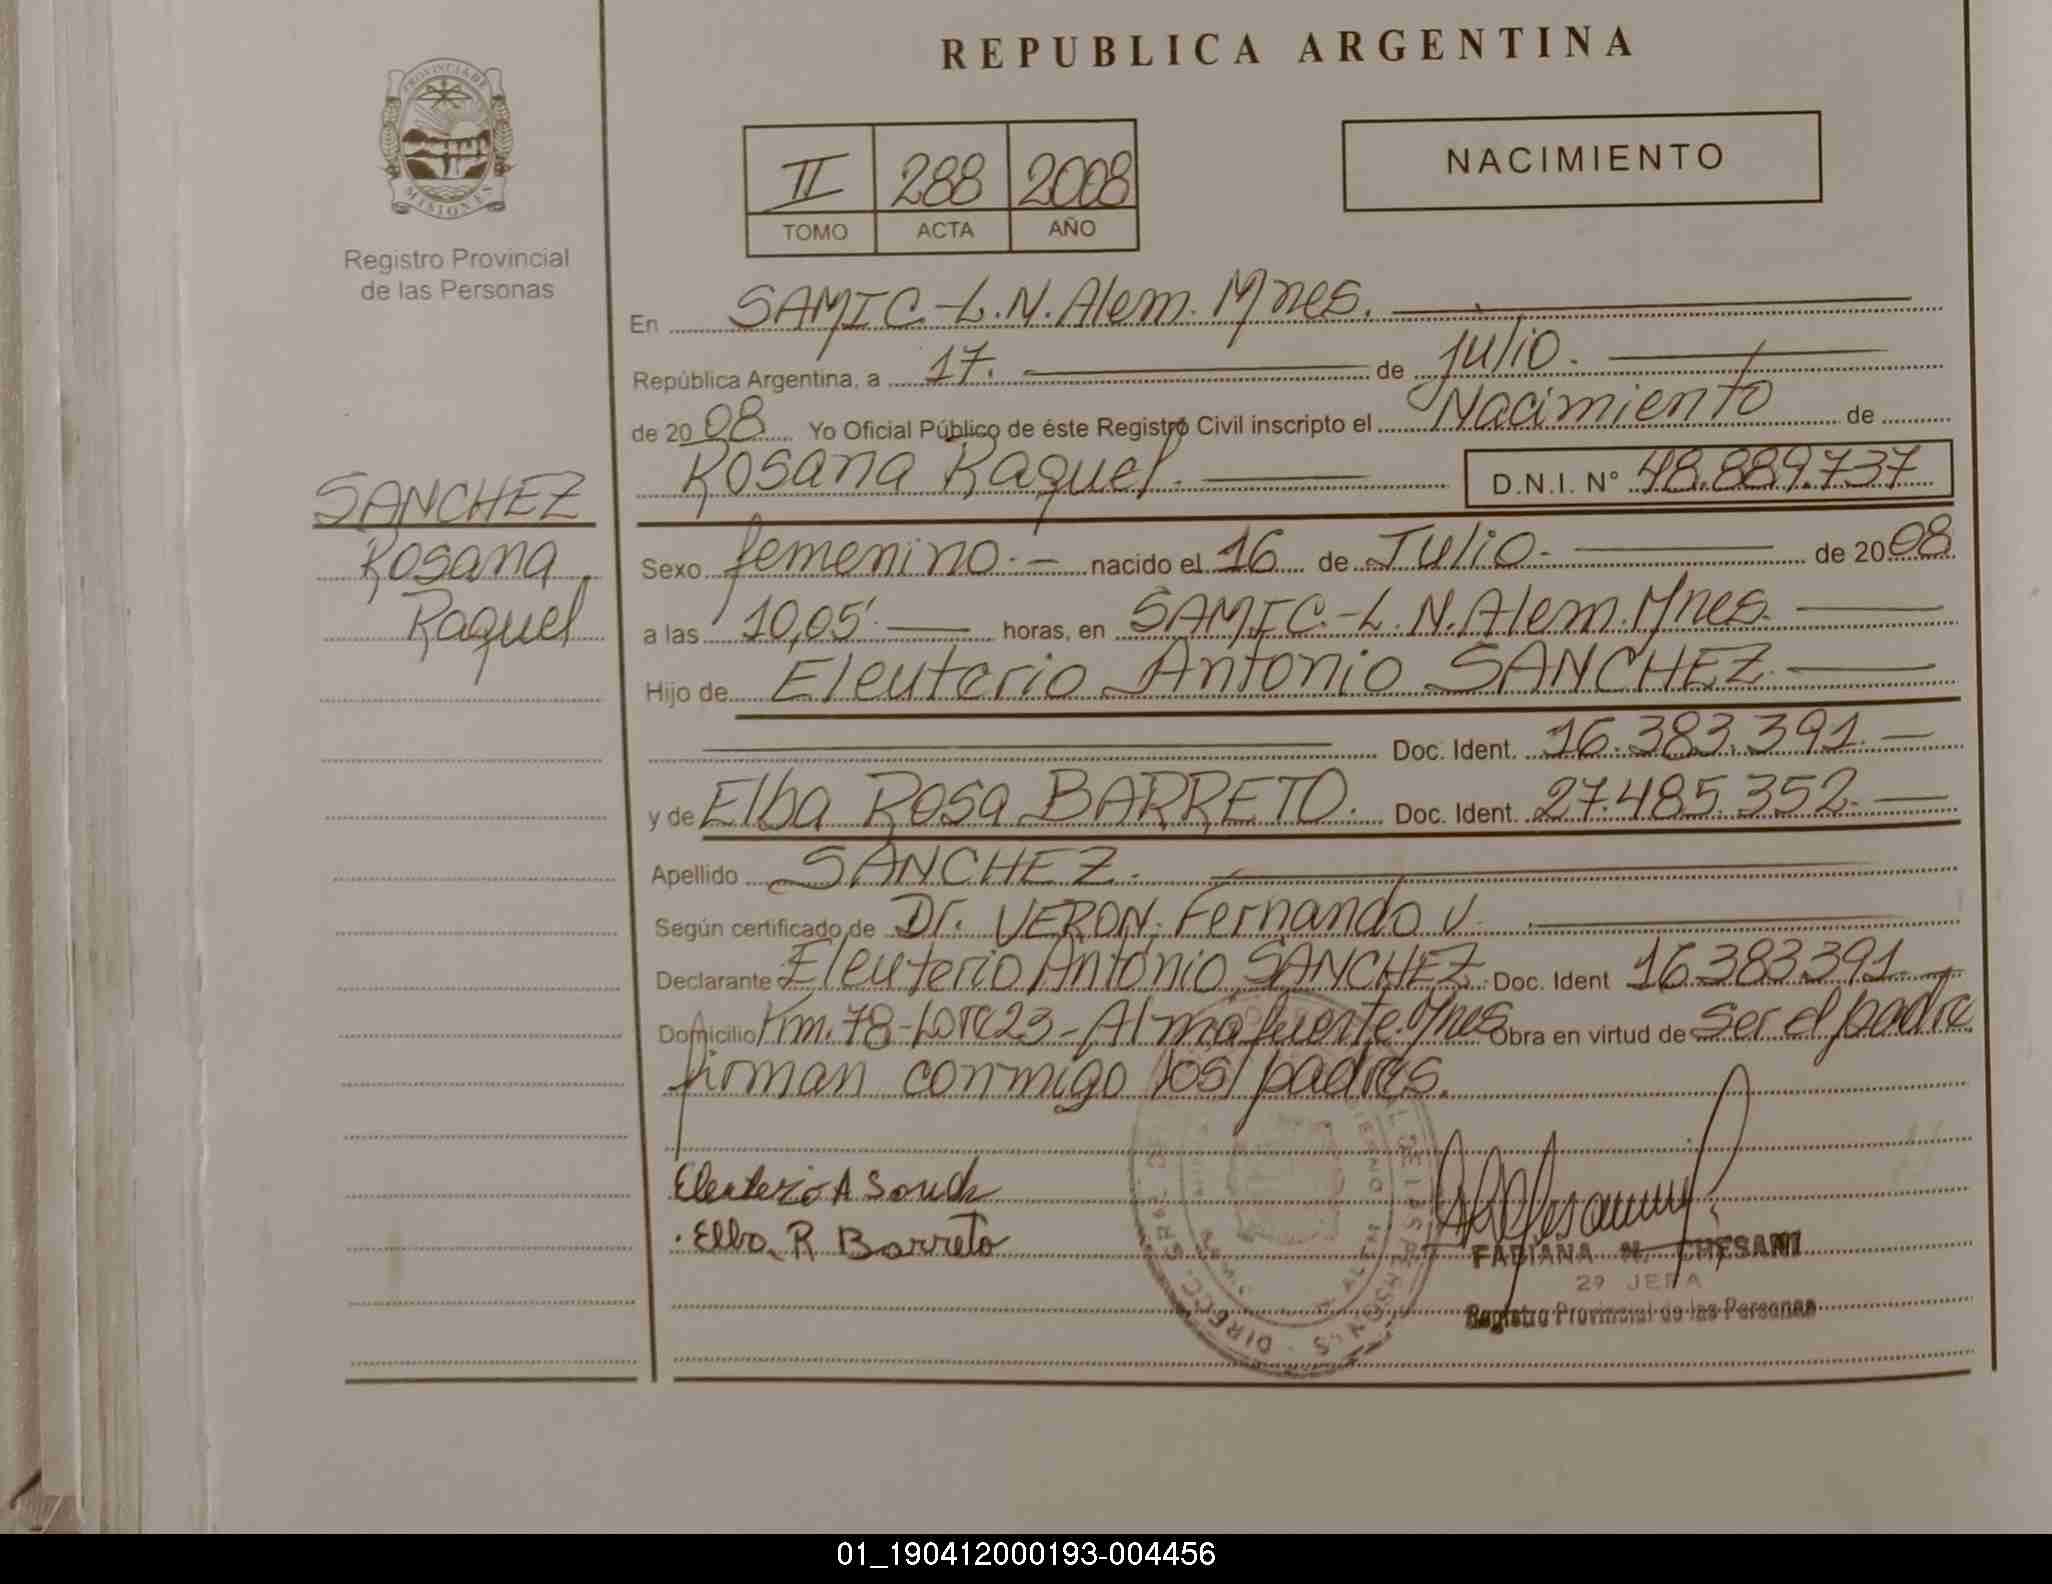 REPUBLICA ARGENTINA
PROVINCIA DE
MISIONES
Registro Provincial
de las Personas
II 288 2008
TOMO ACTA AÑO
NACIMIENTO
En SAMIC.-L.N.Alem.Mnes.
República Argentina, a 17. de julio.
de 2008 Yo Oficial Público de éste Registro Civil inscripto el Nacimiento de
Rosana Raquel. D.N.I. Nº 48.889.737
SANCHEZ
Rosana
Raquel
Sexo femenino.- nacido el 16 de Julio- de 2008
a las 10,05' horas, en SAMIC.-L.N.Alem.Mnes.
Hijo de Eleuterio Antonio SANCHEZ
Doc. Ident. 16.383.391.-
y de Elba Rosa BARRETO. Doc. Ident. 27.485.352.-
Apellido SANCHEZ.
Según certificado de Dr. VERON, Fernando V.
Declarante Eleuterio Antonio SANCHEZ Doc. Ident 16.383.391.-
Domicilio Km.78-Lote 23-Almafuerte.Mnes Obra en virtud de ser el padre
firman conmigo los padres.
Eleuterio A Sanch
Elba R Barreto
FABIANA N. CHESANI
2º JEFA
Registro Provincial de las Personas
01_190412000193-004456